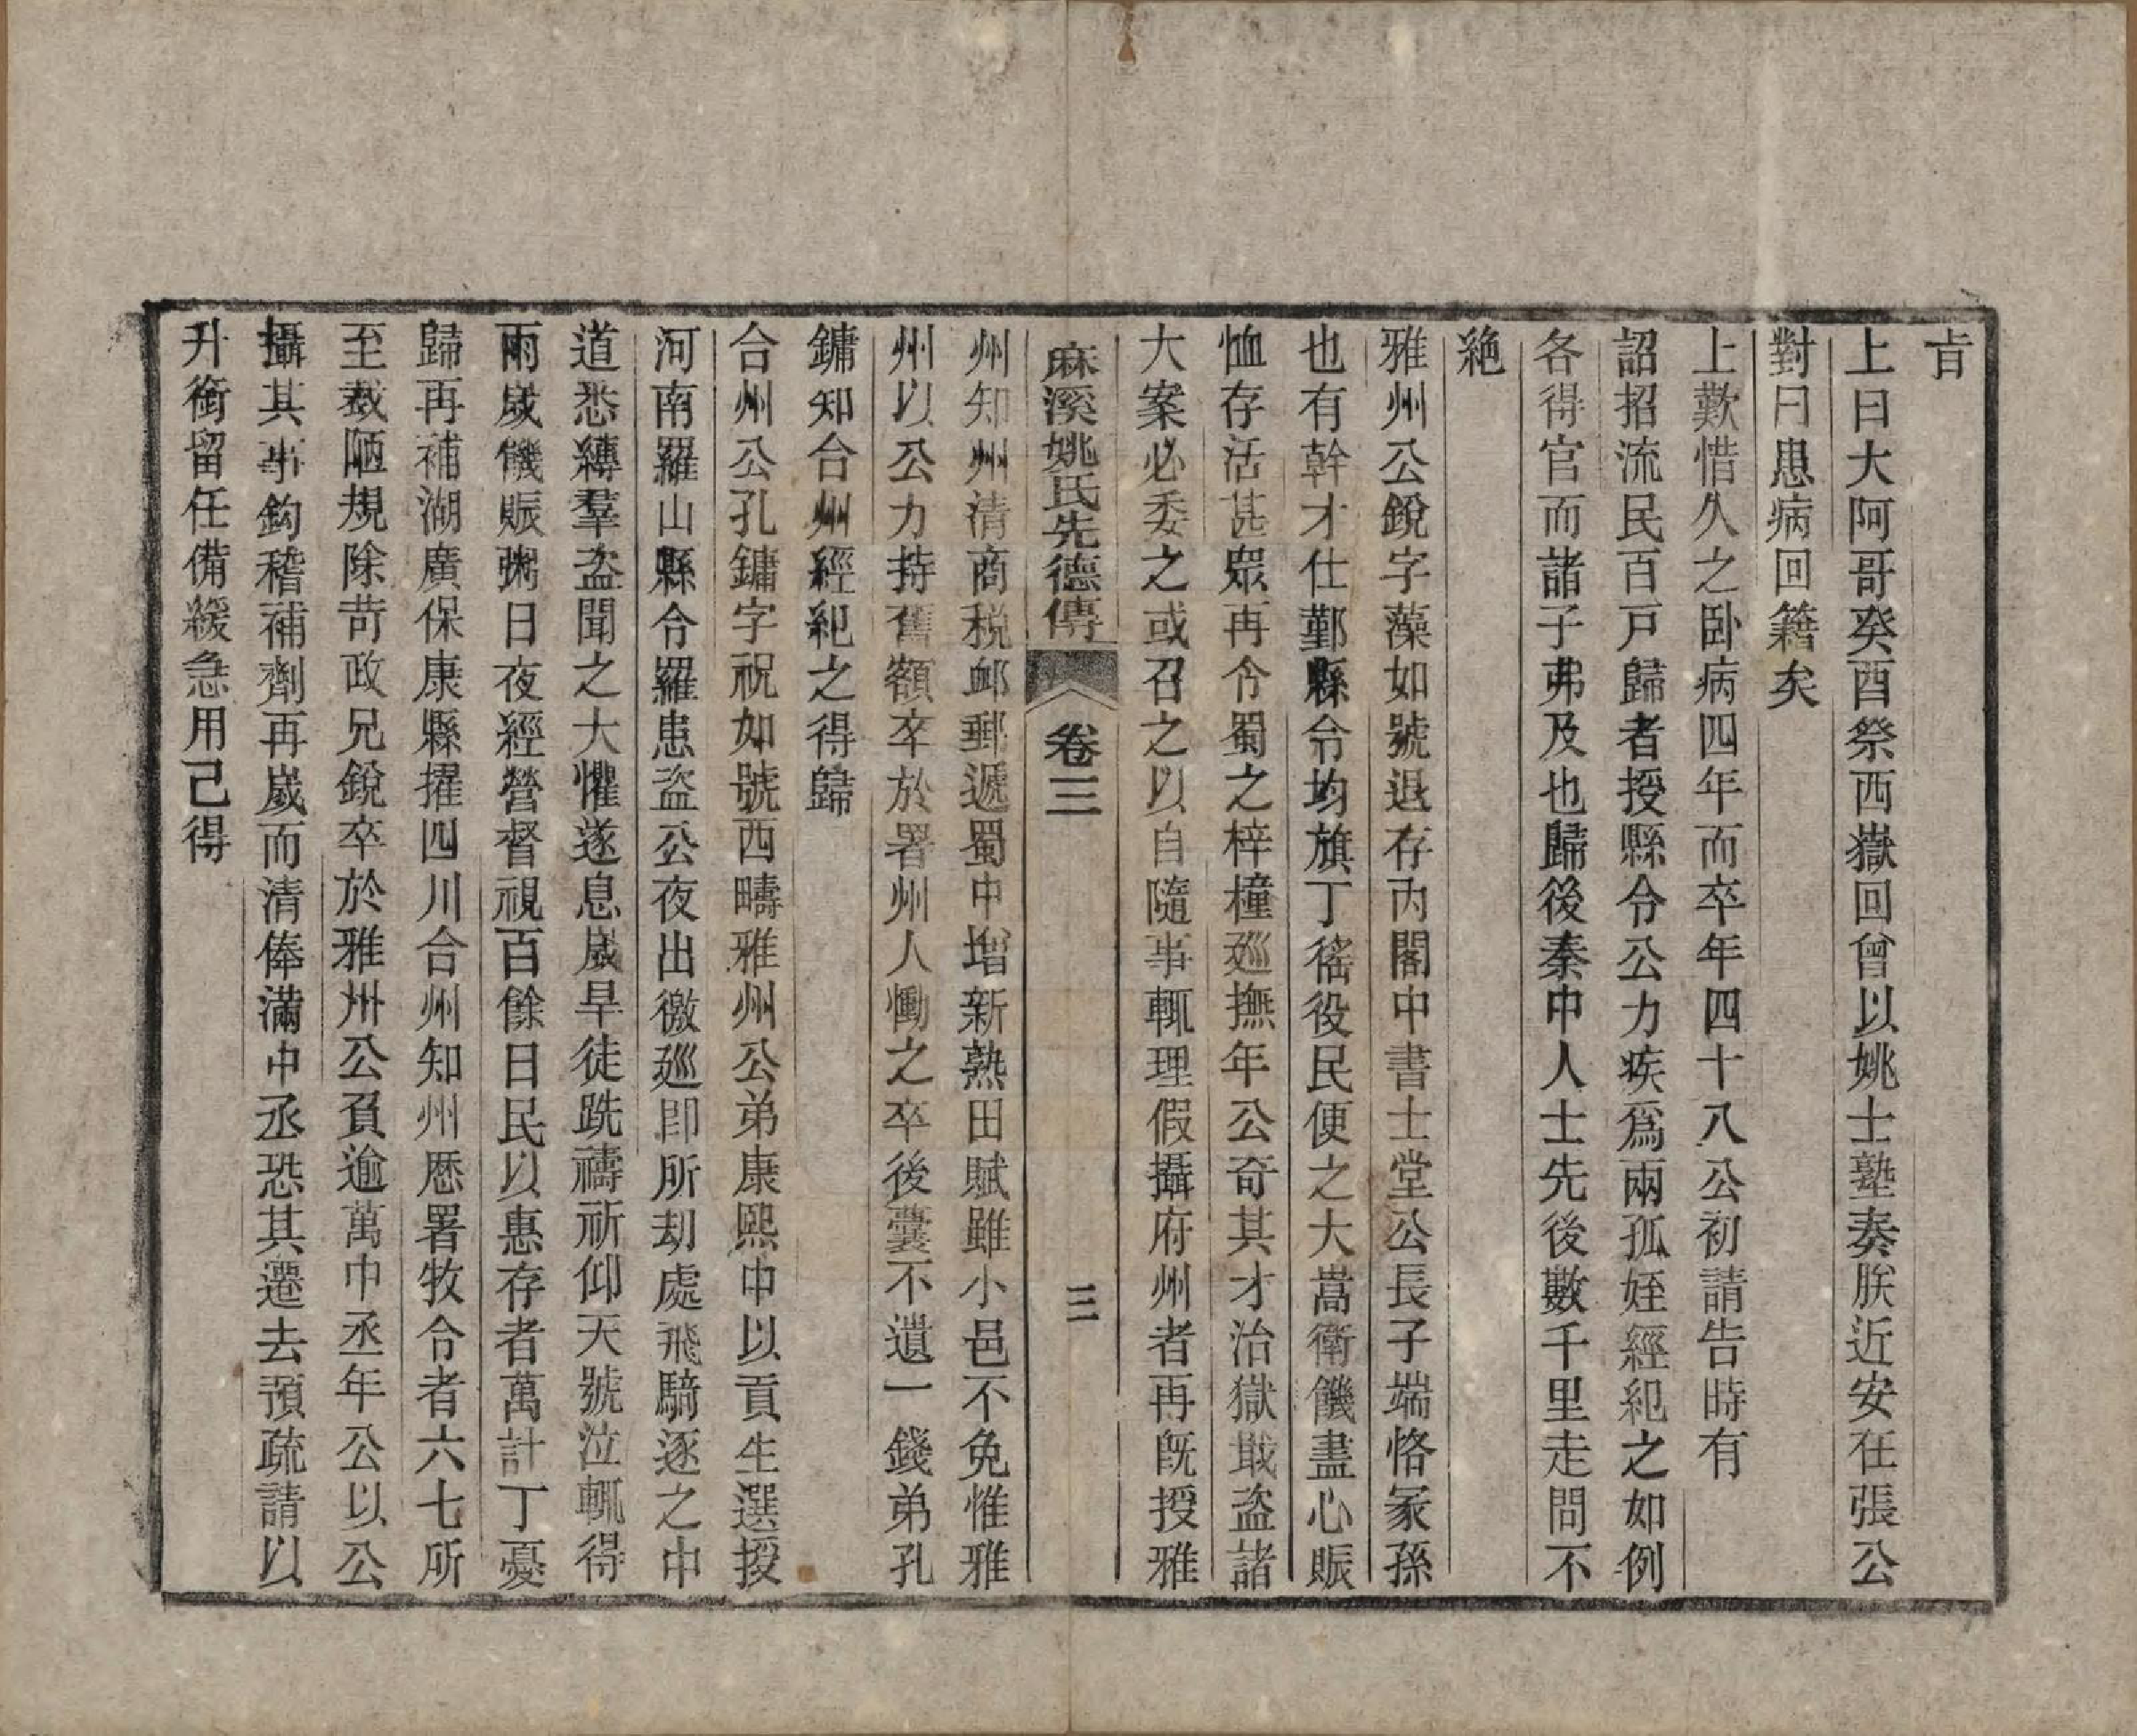 㫖
上曰大阿哥癸酉祭西嶽回曾以姚士塾奏朕近安在張公
對曰患病回籍矣
上歎惜久之卧病四年而卒年四十八公初請告時有
詔招流民百戸歸者授縣令公力疾爲兩孤姪經紀之如例
各得官而諸子弗及也歸後秦中人士先後數千里走問不
絶
雅州公銳字藻如號退存内閣中書士堂公長子端恪冢孫
也有幹才仕鄞縣令均旗丁徭役民便之大嵩衛饑盡心賑
恤存活甚眾再令蜀之梓橦廵撫年公奇其才治獄戢盗諸
大案必委之或召之以自隨事輒理假攝府州者再旣授雅
麻溪姚氏先德傳
卷三
三
州知州清商税衈郵遞蜀中增新熟田賦雖小邑不免惟雅
州以公力持舊額卒於署州人慟之卒後囊不遺一錢弟孔
鏞知合州經紀之得歸
合州公孔鏞字祝如號西疇雅州公弟康熙中以貢生選授
河南羅山縣令羅患盗公夜出徼廵即所刧處飛騎逐之中
道悉縳羣盗聞之大懼遂息歲旱徒跣禱祈仰天號泣輒得
雨歲饑賑粥日夜經營督視百餘日民以惠存者萬計丁憂
歸再補湖廣保康縣擢四川合州知州歴署牧令者六七所
至裁陋規除苛政兄銳卒於雅州公負逾萬中丞年公以公
攝其事鈎稽補劑再歲而清俸滿中丞恐其遷去預疏請以
升銜留任備緩急用己得